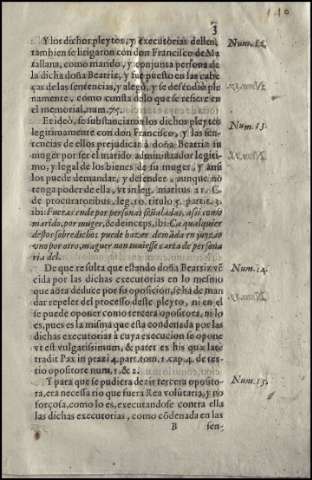 3
Y los dichos pleytos, y executorias dellos,
tambien se litigaron con don Francisco de Ma
rañana, como marido, y conjunta persona de
la dicha doña Beatriz, y fue puesto en las cabe
ças de las sentencias, y alegò, y se defendiò ple
namente, como consta de lo que se refiere en
el memorial, num. 75.
Num. 12.
Et ideò, se substanciaron los dichos pleytos
legitimamente con don Francisco, y las sen-
tencias de ellos prejudican à doña Beatriz su
muger por ser el marido administrador legiti-
mo, y legal de los bienes de su muger, y assi
los puede demandar, y defender, aunque no
tenga poder de ella, vt in leg. maritus 21. C.
de procuratoribus, leg. 10. titulo 5. partit. 3.
ibi: Fueras ende por personas señaladas, assi como
marido, por muger, & deinceps, ibi: Ca qualquier
destos sobredichos puede hazer demāda en juyzio
vno por otro, maguer non tuuiesse carta de persone
ria del.
Num. 13.
De que resulta que estando doña Beatriz vē
cida por las dichas executorias en lo mesmo
que aora deduce por su oposicion, se ha de man
dar repeler del processo deste pleyto, ni en el
se puede oponer como tercera opositora, ni lo
es, pues es la misma que esta condenada por las
dichas executorias à cuya execucion se opone
vt est vulgatissimum, & patet ex his quæ late
tradit Pax in praxi 4. part. tom. 1. cap. 4. de ter-
tio opositore num. 1. & 2.
Num. 14.
Y para que se pudiera dezir tercera oposito-
ra, era necessario que fuera Rea voluntaria, y no
forçosa, como lo es, executandose contra ella
las dichas executorias, como cōdenada en las
Num. 15.
B sen-